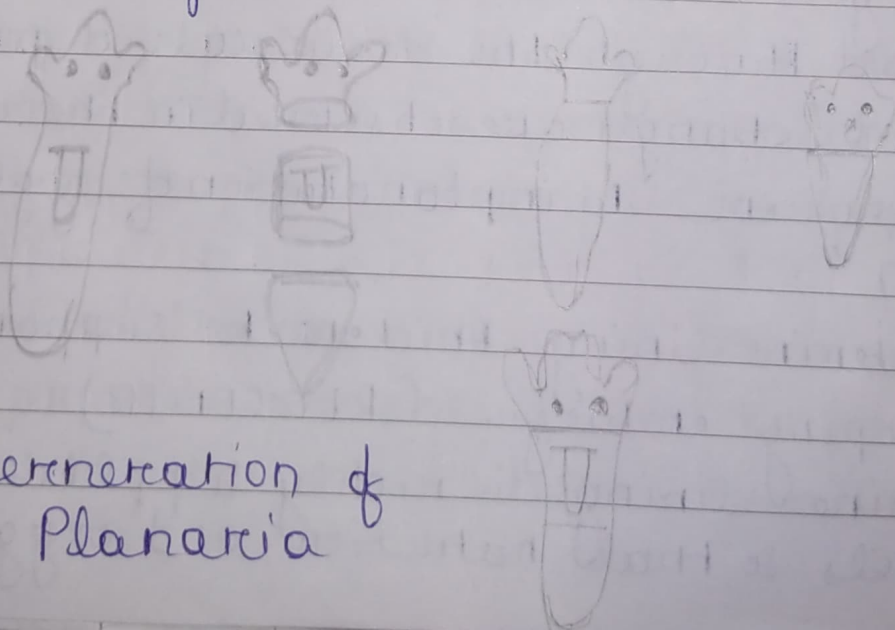 erenereation of
Planaria